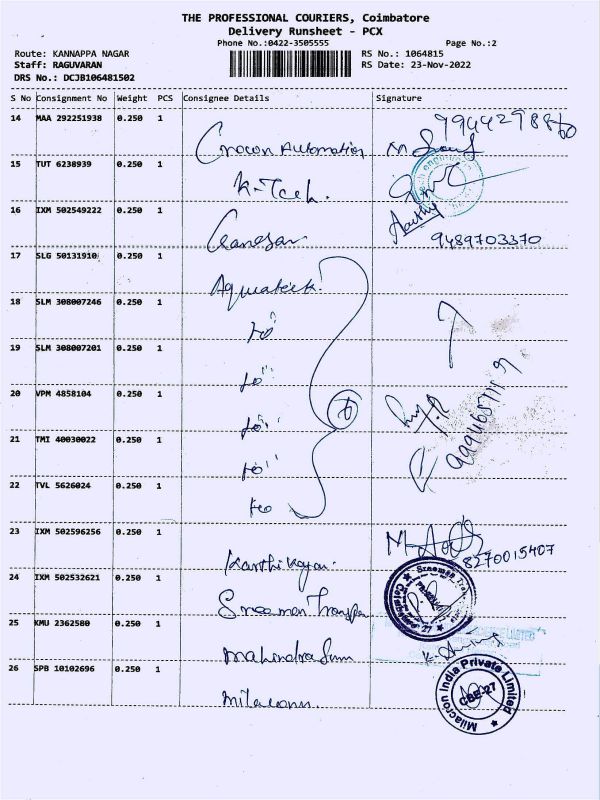 THE PROFESSIONAL COURIERS, Coimbatore
Delivery Runsheet - PCX
Phone No.:0422-3505555 Page No.:2
Route: KANNAPPA NAGAR RS No.: 1064815
Staff: RAGUVARAN RS Date: 23-Nov-2022
DRS No.: DCJB106481502
S No Consignment No Weight PCS Consignee Details Signature
14 MAA 292251938 0.250 1
Crown Automation
15 TUT 6238939 0.250 1
K-Tech.
16 IXM 502549222 0.250 1
Ganesan 9489703370
17 SLG 50131910 0.250 1
Aquateck
18 SLM 308007246 0.250 1
19 SLM 308007201 0.250 1
20 VPM 4858104 0.250 1
21 TMI 40030022 0.250 1
22 TVL 5626024 0.250 1
23 IXM 502596256 0.250 1
8270015407
Karthikayan.
24 IXM 502532621 0.250 1
25 KMU 2362580 0.250 1
Mahindra Sum
26 SPB 10102696 0.250 1
Milacron India Private Limited
CBE-27